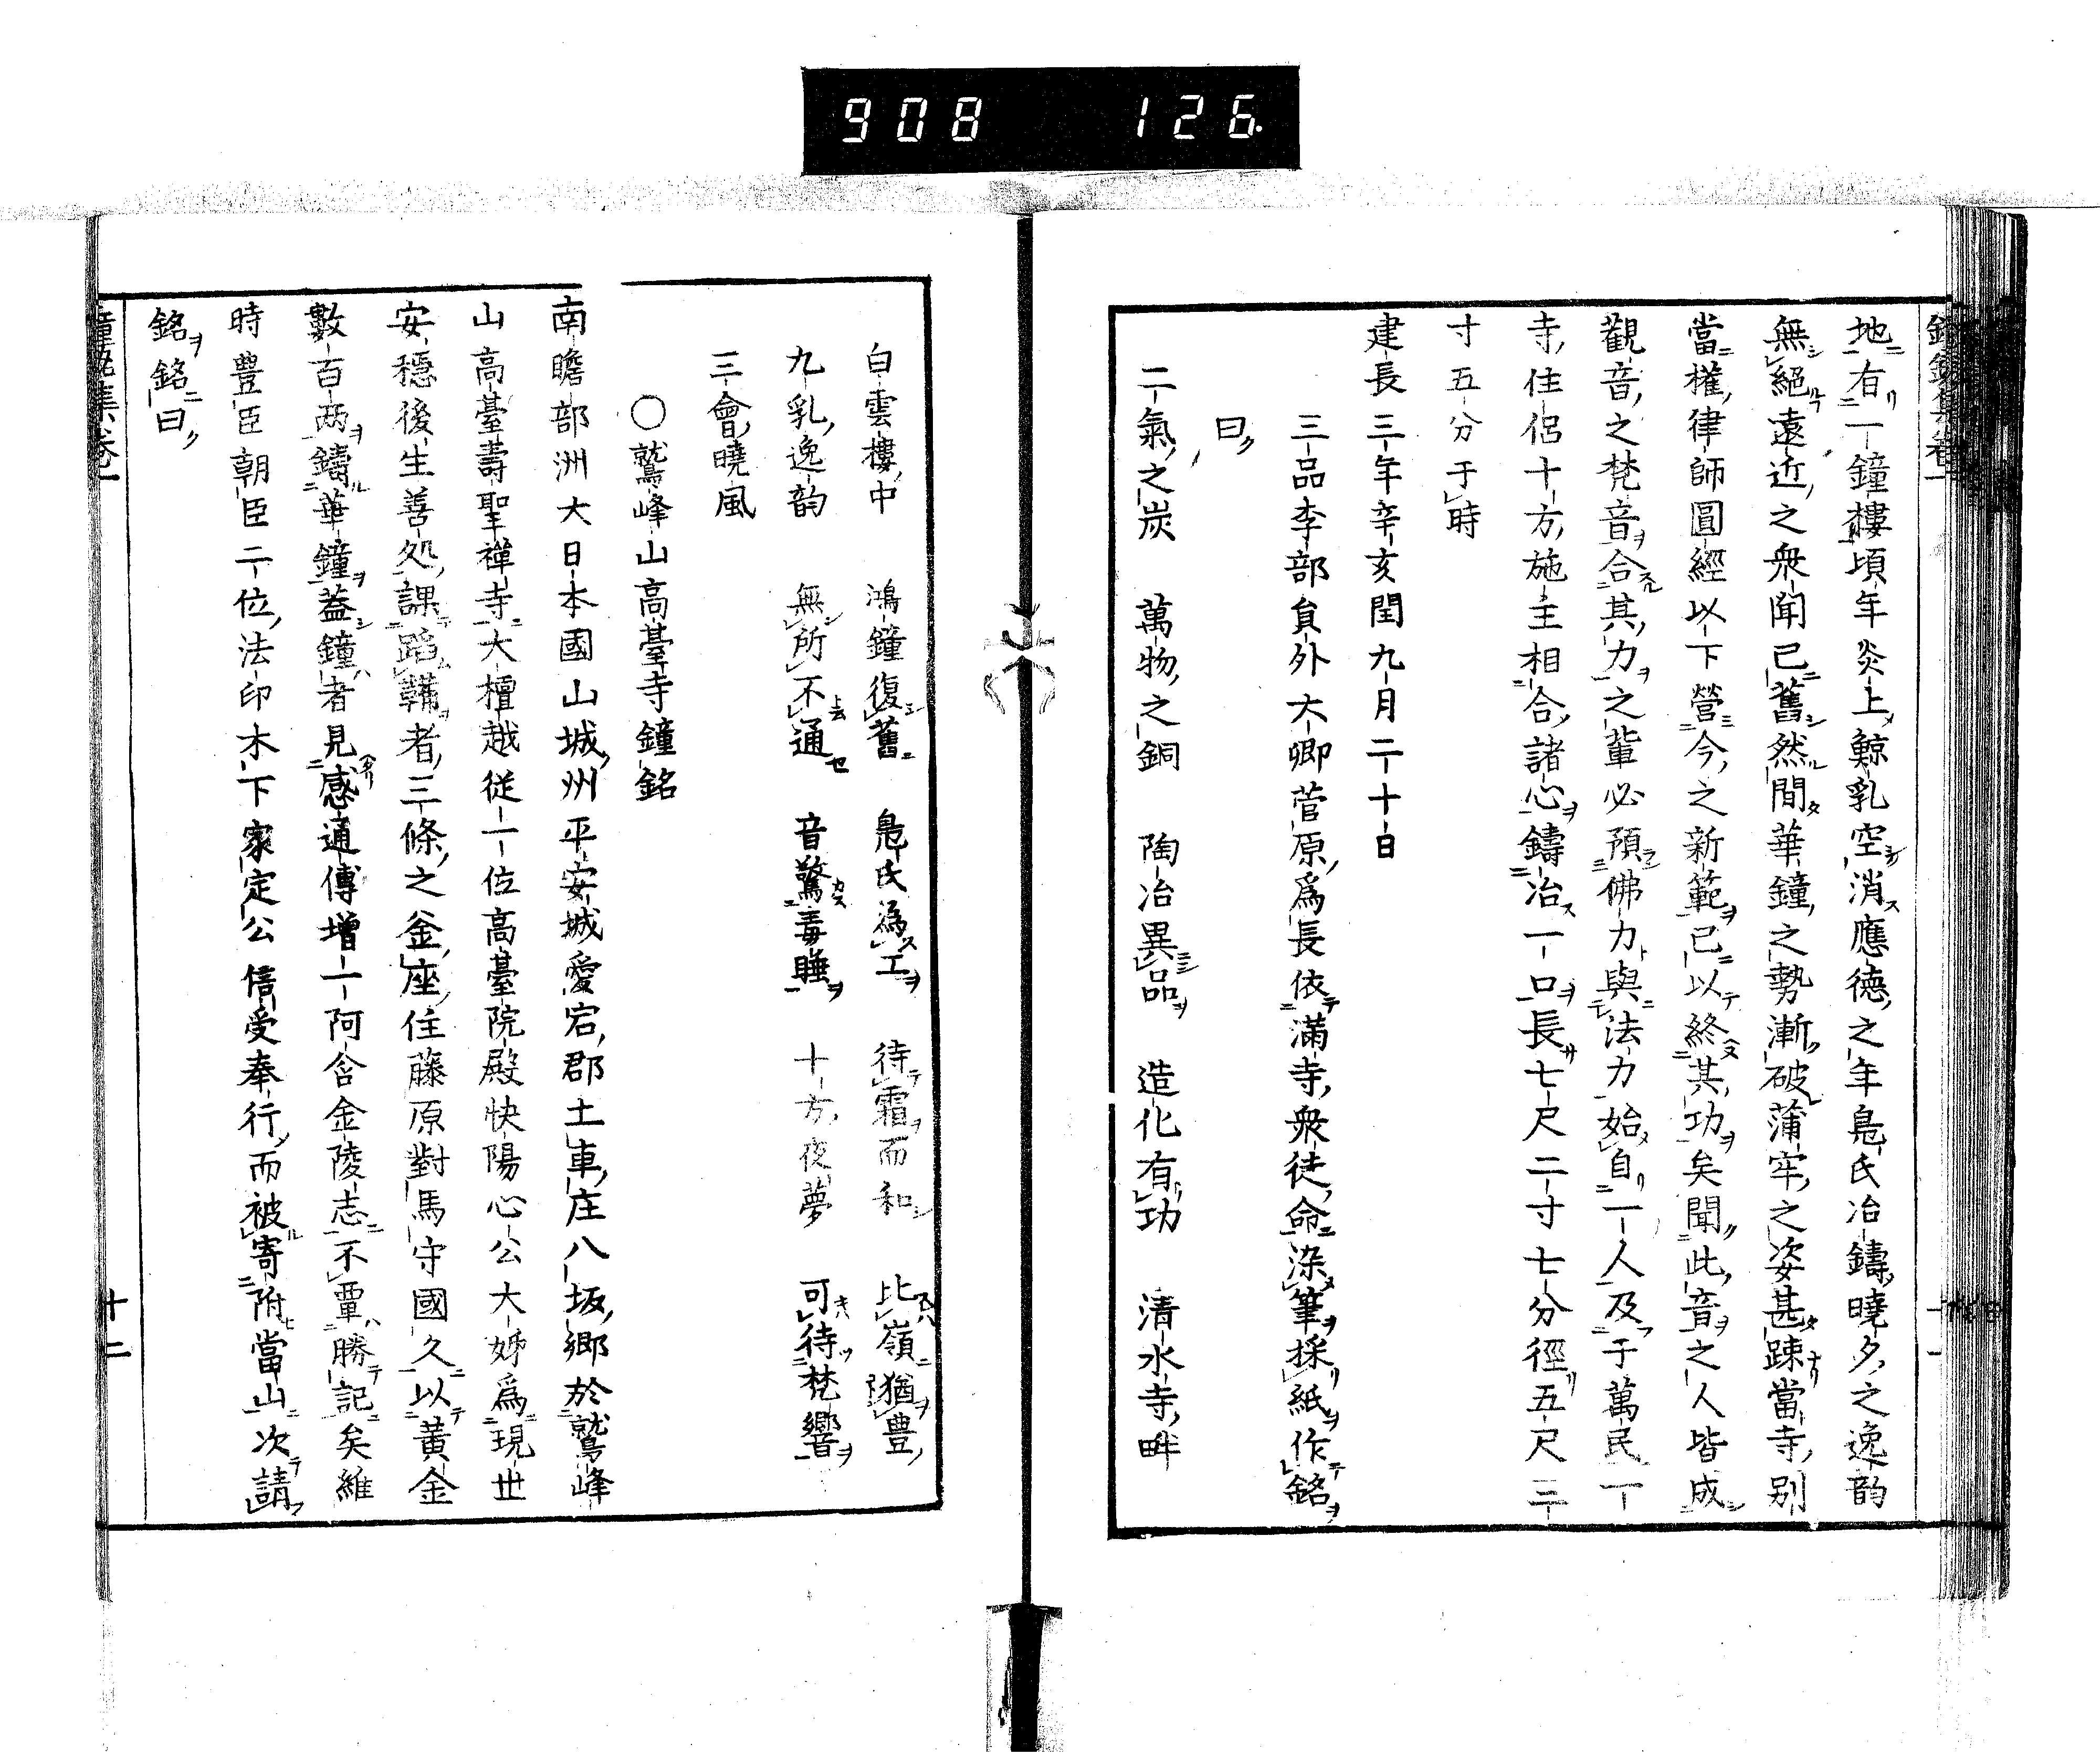 908 126.
鐘銘集卷一
地有一鐘樓頃年炎上鯨乳空消應德之年鳧氏冶鑄曉夕之逸韵
無絕遠近之衆聞已舊然間華鐘之勢漸破蒲牢之姿甚踈當寺別
當權律師圓經以下營今之新範已以終其功矣聞此音之人皆成
觀音之梵音合其力之輩必預佛力與法力始自一人及于萬民一
寺住侶十方施主相合諸心鑄冶一口長七尺二寸七分徑五尺三
寸五分于時
建長三年辛亥閏九月二十日
三品李部員外大卿菅原爲長依滿寺衆徒命染筆採紙作銘
曰
二氣之炭 萬物之銅 陶冶異品 造化有功 清水寺畔
白雲樓中 鴻鐘復舊 鳧氏為工 待霜而和 比嶺猶豊
九乳逸韵 無所不通 音驚毒睡 十方夜夢 可待梵響
三會曉風
〇鷲峰山高臺寺鐘銘
南瞻部洲大日本國山城州平安城愛宕郡土車庄八坂鄉於鷲峰
山高臺壽聖禪寺大檀越從一位高臺院殿快陽心公大姊爲現世
安穩後生善処課蹈鞴者三條之釜座住藤原對馬守國久以黃金
數百两鑄華鐘葢鐘者見感通傳增一阿含金陵志不覃勝記矣維
時豊臣朝臣二位法印木下家定公信受奉行而被寄附當山次請
銘銘曰
鐘銘集卷一
十二